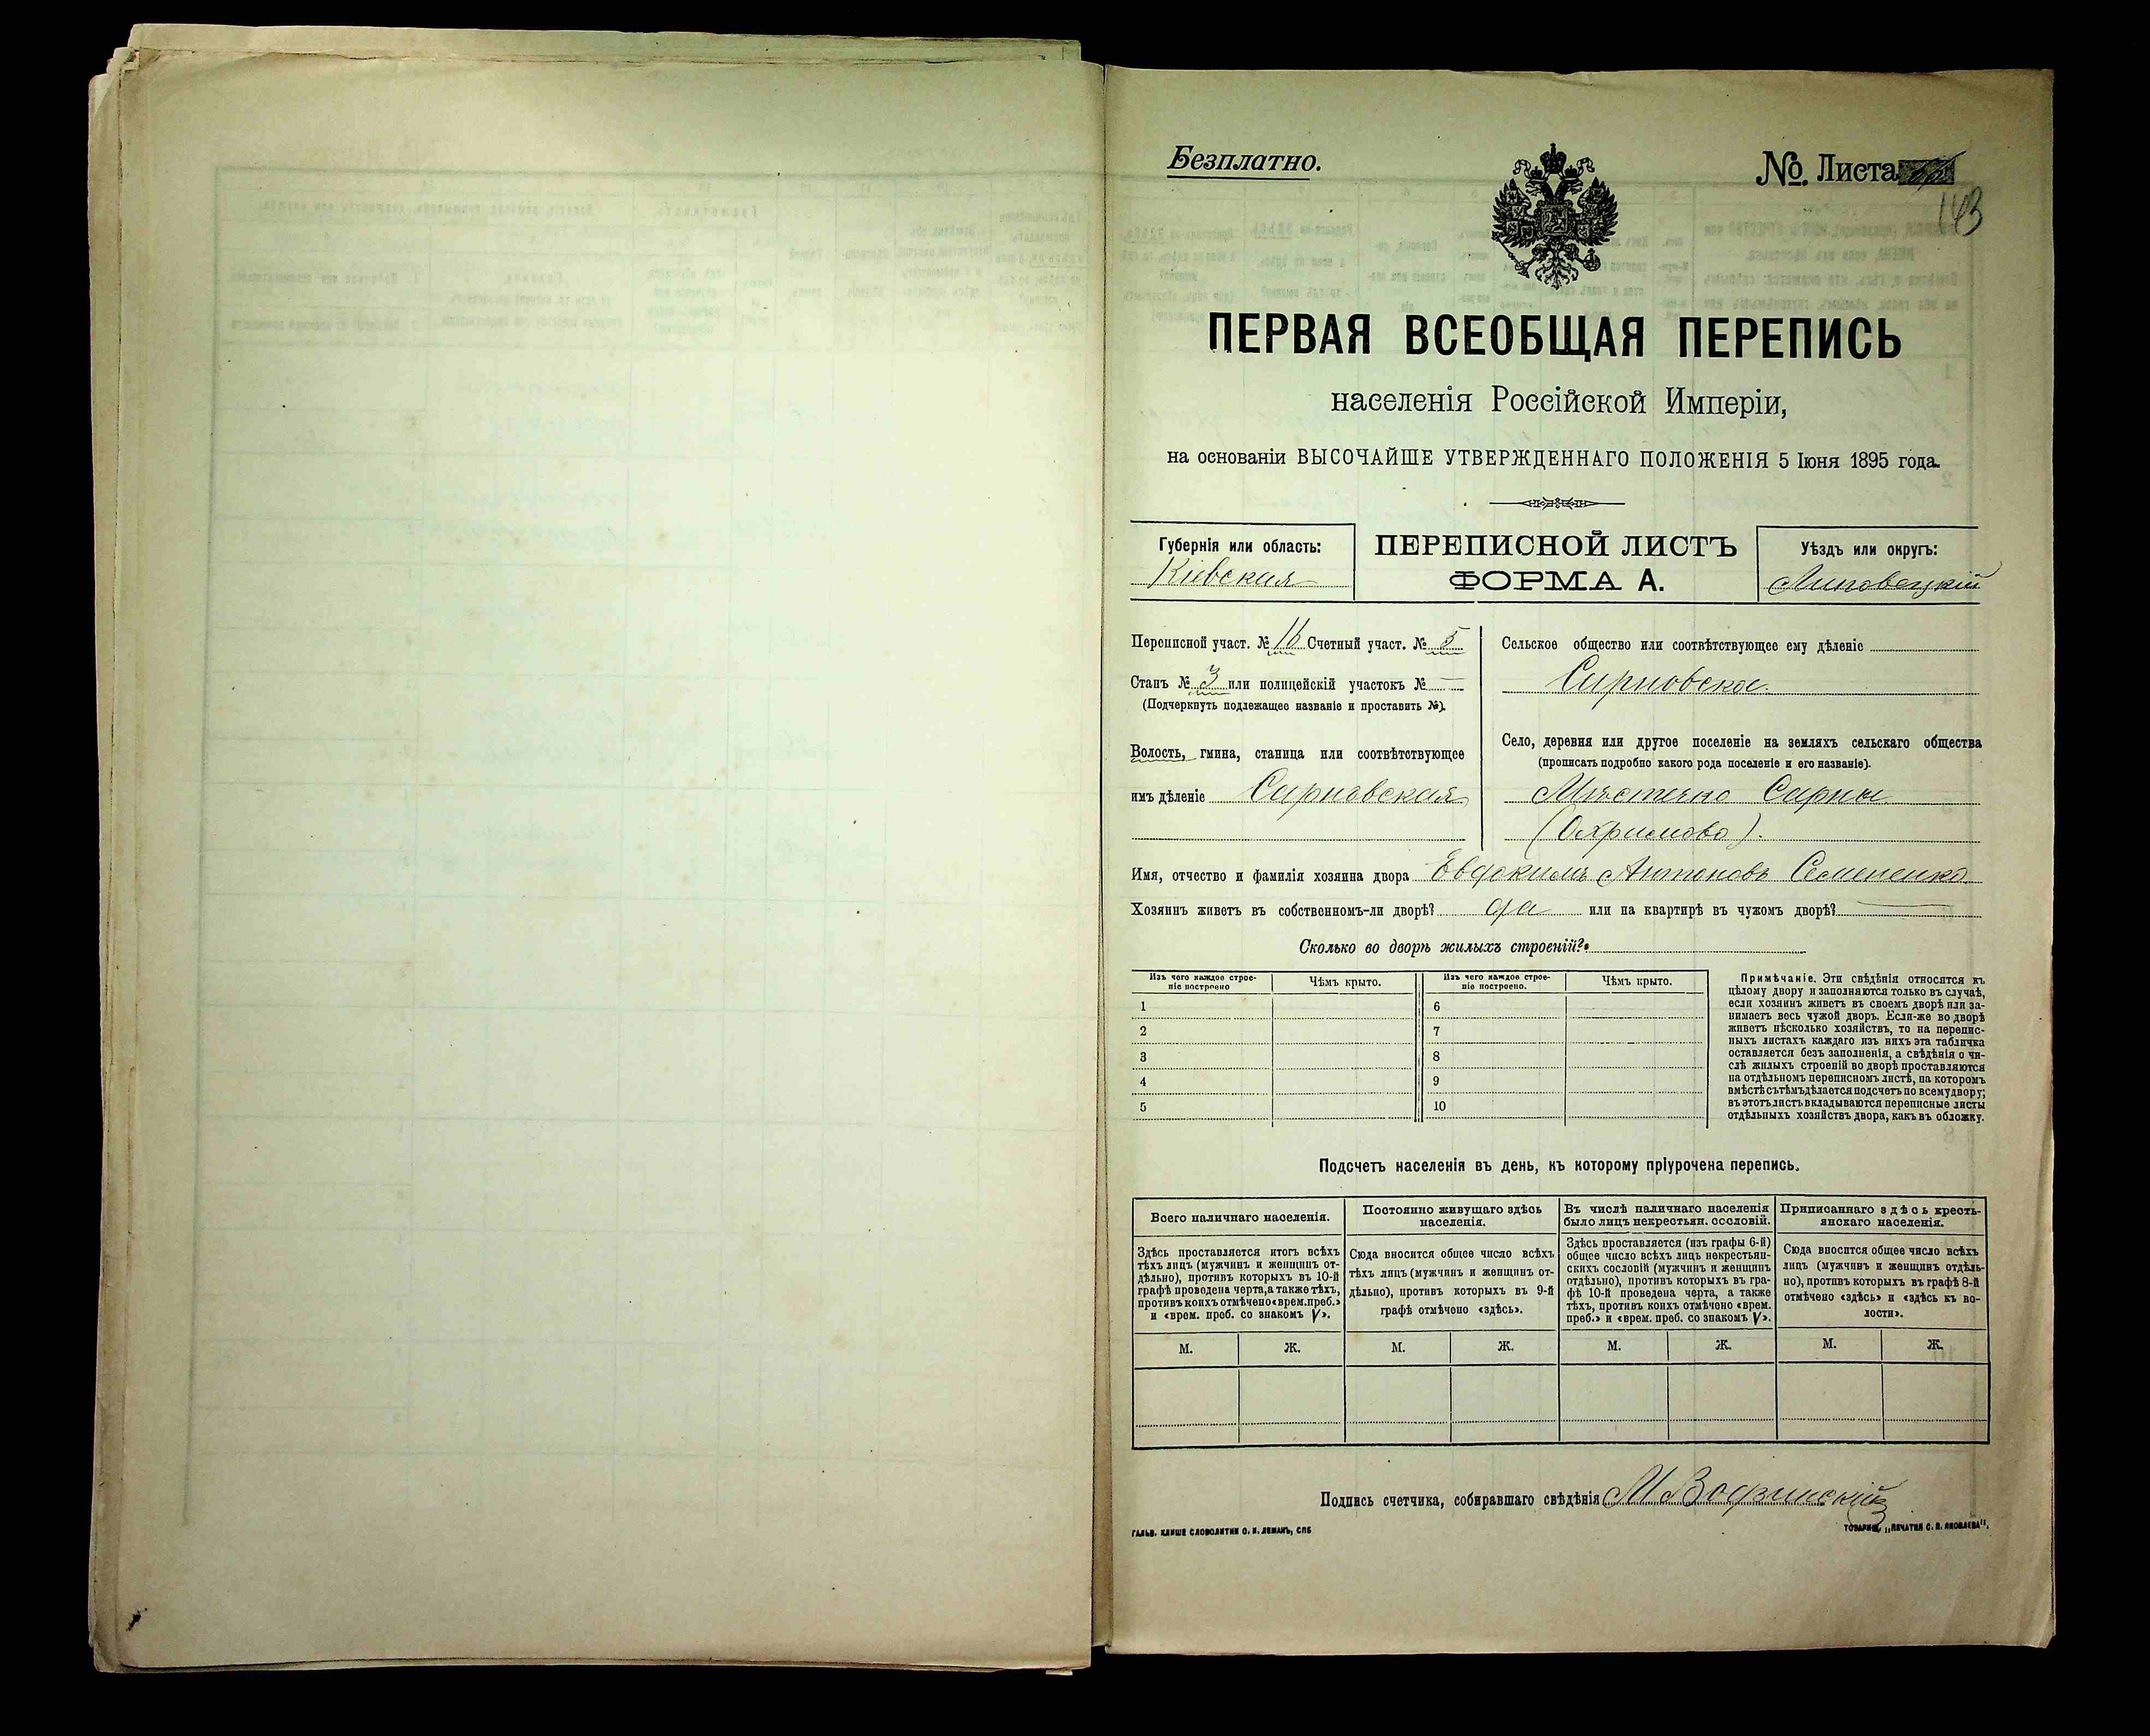 Безплатно.
No. Листа
143
ПЕРВАЯ ВСЕОБЩАЯ ПЕРЕПИСЬ
населенія Россійской Имперіи,
на основаніи ВЫСОЧАЙШЕ УТВЕРЖДЕННАГО ПОЛОЖЕНІЯ 5 Іюня 1895 года.
Губернія или область:
Кіевская
ПЕРЕПИСНОЙ ЛИСТЪ
ФОРМА А.
Уѣздъ или округъ:
Липовецкій
Переписной участ. № 16 Счетный участ. № 5
Станъ № 3 или полицейскій участокъ № —
(Подчеркнуть подлежащее названіе и проставить №).
Волость, гмина, станица или соотвѣтствующее
имъ дѣленіе Сарновская
Сельское общество или соотвѣтствующее ему дѣленіе
Сарновское.
Село, деревня или другое поселеніе на земляхъ сельскаго общества
(прописать подробно какого рода поселеніе и его названіе).
Мѣстечко Сарны
(Охримово).
Имя, отчество и фамилія хозяина двора Евдокимъ Антоновъ Семененко
Хозяинъ живетъ въ собственномъ-ли дворѣ? да или на квартирѣ въ чужомъ дворѣ? —
Сколько во дворѣ жилыхъ строеній?
Изъ чего каждое строе-
ніе построено
Чѣмъ крыто.
Изъ чего каждое строе-
ніе построено.
Чѣмъ крыто.
1
2
3
4
5
6
7
8
9
10
Примѣчаніе. Эти свѣдѣнія относятся къ
цѣлому двору и заполняются только въ случаѣ,
если хозяинъ живетъ въ своемъ дворѣ или за-
нимаетъ весь чужой дворъ. Если-же во дворѣ
живетъ нѣсколько хозяйствъ, то на перепис-
ныхъ листахъ каждаго изъ нихъ эта табличка
оставляется безъ заполненія, а свѣдѣнія о чи-
слѣ жилыхъ строеній во дворѣ проставляются
на отдѣльномъ переписномъ листѣ, на которомъ
вмѣстѣ съ тѣмъ дѣлается подсчетъ по всему двору;
въ этотъ листъ вкладываются переписные листы
отдѣльныхъ хозяйствъ двора, какъ въ обложку.
Подсчетъ населенія въ день, къ которому пріурочена перепись.
Всего наличнаго населенія.
Здѣсь проставляется итогъ всѣхъ
тѣхъ лицъ (мужчинъ и женщинъ от-
дѣльно), противъ которыхъ въ 10-й
графѣ проведена черта, а также тѣхъ,
противъ коихъ отмѣчено «врем. преб.»
и «врем. преб. со знакомъ V».
Постоянно живущаго здѣсь
населенія.
Сюда вносится общее число всѣхъ
тѣхъ лицъ (мужчинъ и женщинъ от-
дѣльно), противъ которыхъ въ 9-й
графѣ отмѣчено «здѣсь».
Въ числѣ наличнаго населенія
было лицъ некрестьян. сословій.
Здѣсь проставляется (изъ графы 6-й)
общее число всѣхъ лицъ некрестьян-
скихъ сословій (мужчинъ и женщинъ
отдѣльно), противъ которыхъ въ гра-
фѣ 10-й проведена черта, а также
тѣхъ, противъ коихъ отмѣчено «врем.
преб.» и «врем. преб. со знакомъ V».
Приписаннаго здѣсь кресть-
янскаго населенія.
Сюда вносится общее число всѣхъ
лицъ (мужчинъ и женщинъ отдѣль-
но), противъ которыхъ въ графѣ 8-й
отмѣчено «здѣсь» и «здѣсь къ во-
лости».
М. Ж. М. Ж. М. Ж. М. Ж.
Подпись счетчика, собиравшаго свѣдѣнія М
ГАЛЬВ. КЛИШЕ СЛОВОЛИТНИ О. И. ЛЕМАНЪ, СПБ
ТОВАРИЩ. „ПЕЧАТНЯ С. П. ЯКОВЛЕВА".